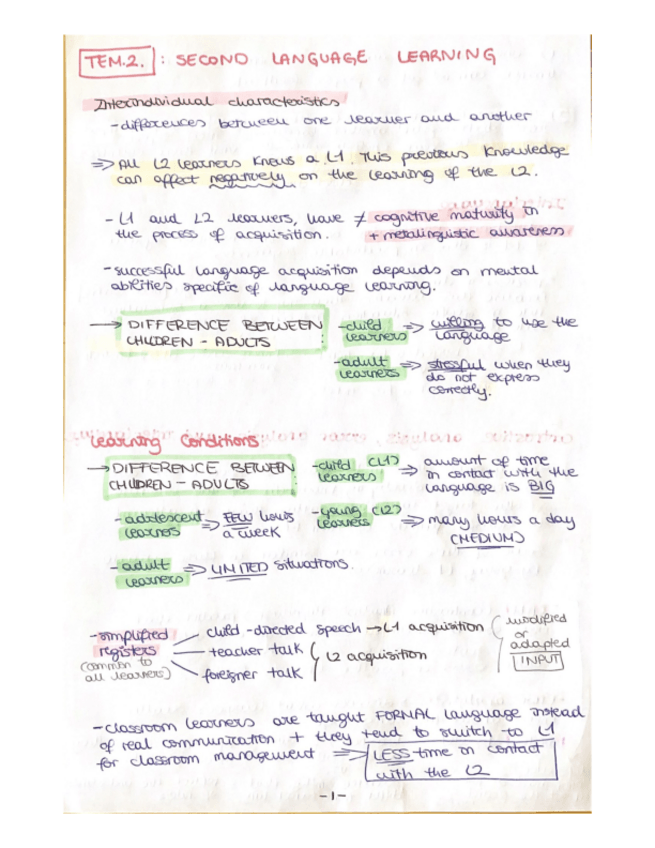 TEM.2. : SECOND LANGUAGE LEARNING
Interindividual characteristics
- differences between one learner and another
=> All L2 learners knows a L1. This previous knowledge
can affect negatively on the learning of the L2.
- L1 and L2 learners, have ≠ cognitive maturity in
the process of acquisition. + metalinguistic awareness
- successful language acquisition depends on mental
abilities specific of language learning.
→ DIFFERENCE BETWEEN
CHILDREN - ADULTS
- child learners => willing to use the
language
- adult learners => stressful when they
do not express
correctly.
Learning Conditions
→ DIFFERENCE BETWEEN
CHILDREN - ADULTS
- child (L1)
learners => amount of time
in contact with the
language is BIG
- adolescent
learners => FEW hours
a week
- young (L2)
learners => many hours a day
(MEDIUM)
- adult
learners => LIMITED situations.
- simplified
registers
(common to
all learners)
child-directed speech → L1 acquisition
teacher talk
foreigner talk
L2 acquisition
modified
or
adapted
INPUT
- classroom learners are taught FORMAL language instead
of real communication + they tend to switch to L1
for classroom management => LESS time in contact
with the L2
- 1 -